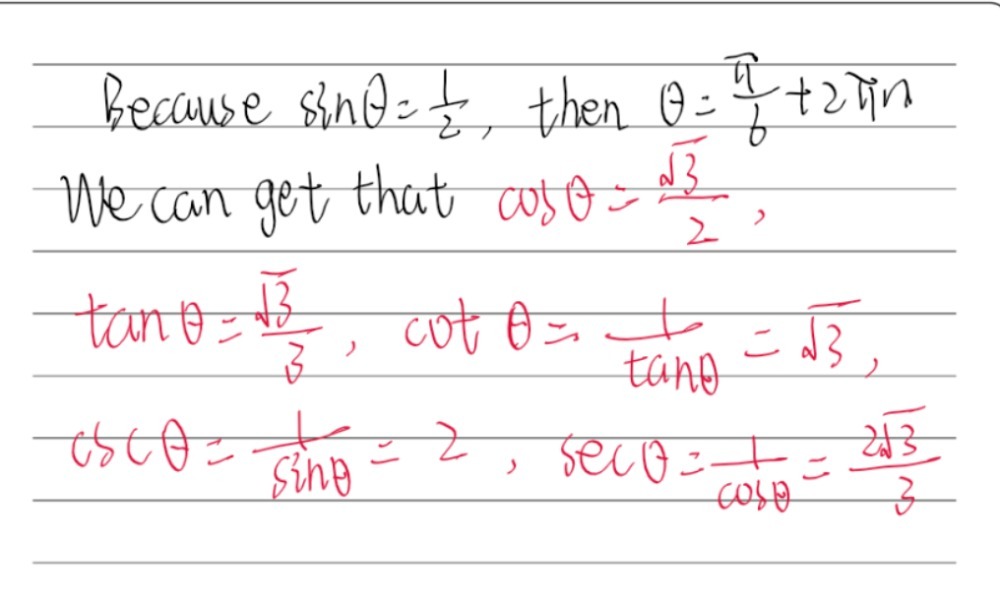 Because sinθ = 1/2, then θ = π/6 + 2πn
We can get that cosθ = √3/2,
tanθ = √3/3, cot θ = 1/tanθ = √3,
cscθ = 1/sinθ = 2, secθ = 1/cosθ = 2√3/3